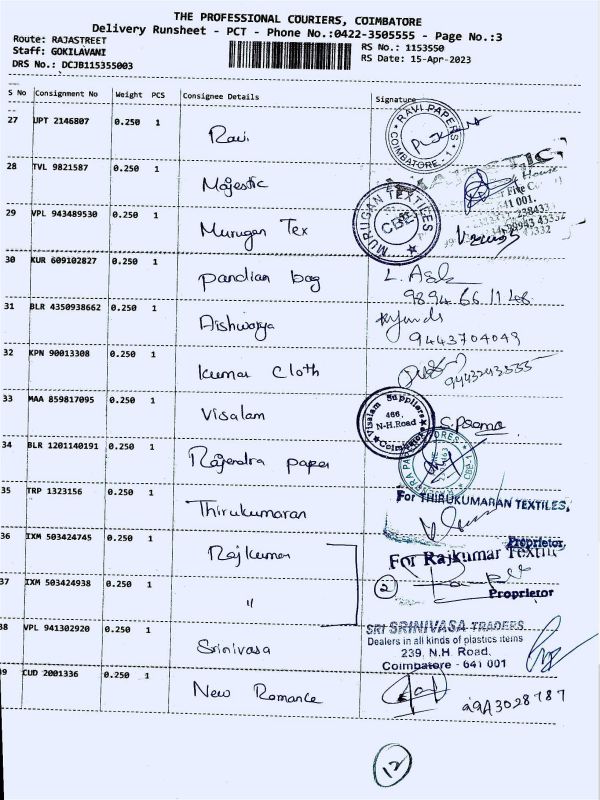 THE PROFESSIONAL COURIERS, COIMBATORE
Delivery Runsheet - PCT - Phone No.:0422-3505555 - Page No.:3
Route: RAJASTREET
RS No.: 1153550
Staff: GOKILAVANI
RS Date: 15-Apr-2023
DRS No.: DCJB115355003
S No Consignment No Weight PCS Consignee Details Signature
27 UPT 2146807 0.250 1 Ravi RAVI PAPERS COIMBATORE
28 TVL 9821587 0.250 1 Majestic MAJESTIC House 641 001.
29 VPL 943489530 0.250 1 Murugan Tex MURUGAN TEXTILES CBE
30 KUR 609102827 0.250 1 Pandian bag
9894 66 1148
31 BLR 4350938662 0.250 1 Aishwarya
9443704049
32 KPN 90013308 0.250 1 Kumar Cloth
33 MAA 859817095 0.250 1 Visalam Visalam Suppliers 466, N-H.Road Coimbatore
34 BLR 1201140191 0.250 1 Rajendra paper
35 TRP 1323156 0.250 1 Thirukumaran For THIRUKUMARAN TEXTILES,
Proprietor.
36 IXM 503424745 0.250 1 Rajkumar For Rajkumar Textil
37 IXM 503424938 0.250 1 " 2 Proprietor
38 VPL 941302920 0.250 1 Srinivasa SRI SRINIVASA TRADERS
Dealers in all kinds of plastics items
239, N.H. Road,
Coimbatore - 641 001
39 CUD 2001336 0.250 1 New Romance
12